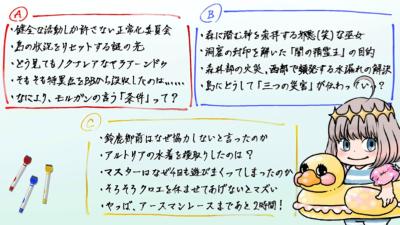 A
・健全な活動しか許さない正常化委員会
・島の状況をリセットする謎の光
・どう見てもノクナレアなイヴァーンドゥ
・そもそも特異点をBBから没収したのは……
・なにより、モルガンの言う「条件」って？
B
・森に潜む神を崇拝する邪悪(笑)な巫女
・洞窟の封印を解いた「闇の精霊王」の目的
・森林部の火災、西部で頻発する水漏れの解決
・島にどうして「三つの災害」が伝わっ
C
・鈴鹿御前はなぜ協力しないと言ったのか
・アルトリアの水着を横取りしたのは？
・マスターはなぜ4日も遊びまくってしまったのか
・そろそろクロエを休ませてあげないとマズい
・やっば、アースマンレースまであと2時間！